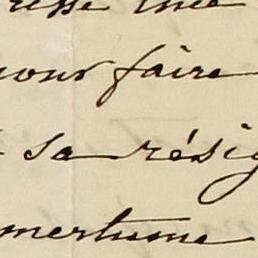 resse une
pour faire
sa résig
mertume